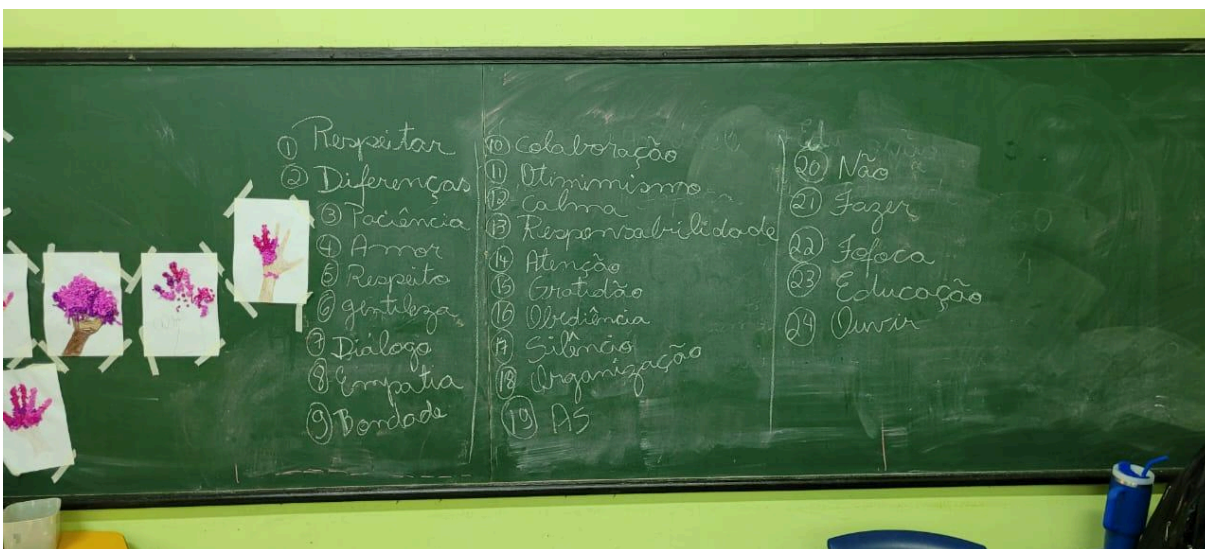 ① Respeitar
② Diferenças
③ Paciência
④ Amor
⑤ Respeito
⑥ gentileza
⑦ Diálogo
⑧ Empatia
⑨ Bondade
⑩ colaboração
⑪ Otimimismo
⑫ calma
⑬ Responsabilidade
⑭ Atenção
⑮ Gratidão
⑯ Obediência
⑰ Silêncio
⑱ Organização
⑲ AS
⑳ Não
㉑ Fazer
㉒ Fofoca
㉓ Educação
㉔ Ouvir